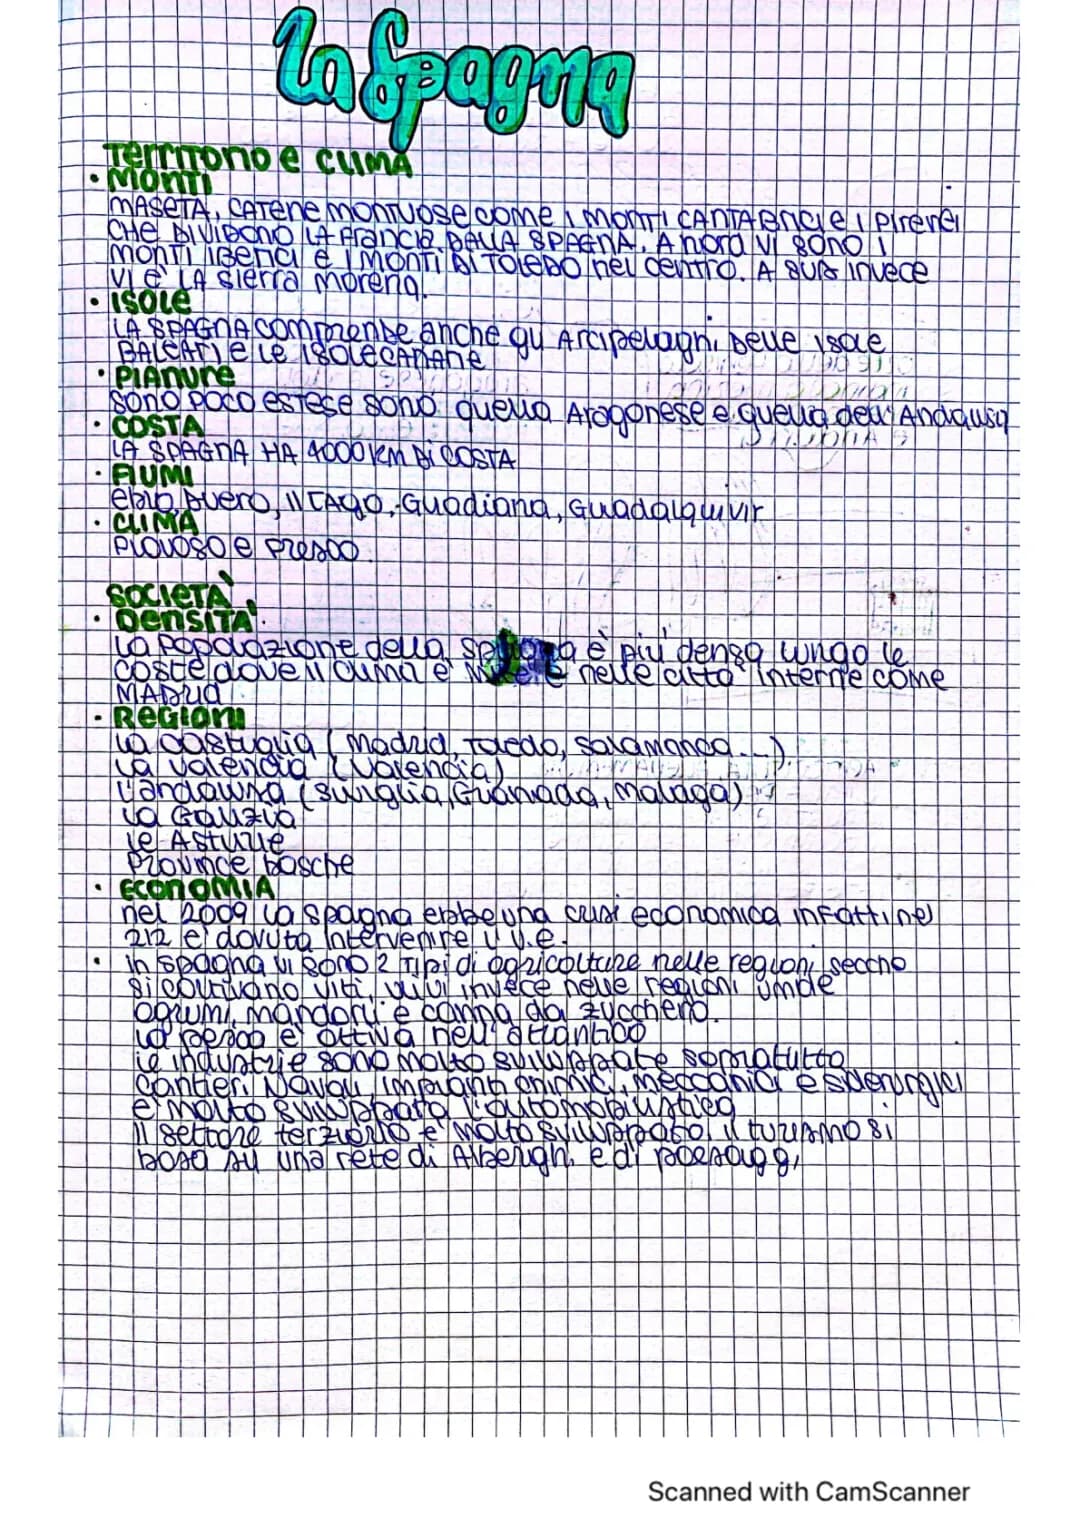 La Spagna
Territorio e CLIMA
• MONTI
MASETA, CATENE MONTUOSE come i MONTI CANTABRICI e i Pirenei
CHE DIVIDONO LA Francia DALLA SPAGNA. A nord VI SONO I
MONTI IBERICI E I MONTI DI TOLEDO nel centro. A SUD invece
VI È LA Sierra Morena.
• ISOLE
LA SPAGNA comprende anche gli Arcipelaghi Delle isole
BALEARI e Le ISOLE CANARIE
• PIANURE
SONO POCO ESTESE SONO quella Aragonese e quella dell'Andalusia
• COSTA
LA SPAGNA HA 4000 KM DI COSTA
• FIUMI
ebro, Duero, il TAGO, Guadiana, Guadalquivir
• CLIMA
PIOVOSO e FRESCO
SOCIETÀ
• DENSITÀ
La Popolazione della Spagna è più densa lungo le
coste dove il clima è e nelle città interne come
MADRID
• REGIONI
La Castiglia (Madrid, Toledo, Salamanca...)
La Valencia (Valencia)
L'andalusia (Siviglia, Granada, Malaga)
La Galizia
le Asturie
Province basche
• ECONOMIA
nel 2009 la Spagna ebbe una crisi economica infatti nel
212 è dovuta intervenire l'u.e.
• in Spagna vi sono 2 tipi di agricolture nelle regioni secche
si coltivano viti, ulivi invece nelle regioni umide
agrumi, mandorli e canna da zucchero.
La pesca è attiva nell'atlantico
le industrie sono molto sviluppate sopratutto
cantieri Navali, impianti chimici, meccanici e siderurgici
è molto sviluppata l'automobilistica
Il settore terziario è molto sviluppato, il turismo si
basa su una rete di Alberghi e di paesaggi
Scanned with CamScanner